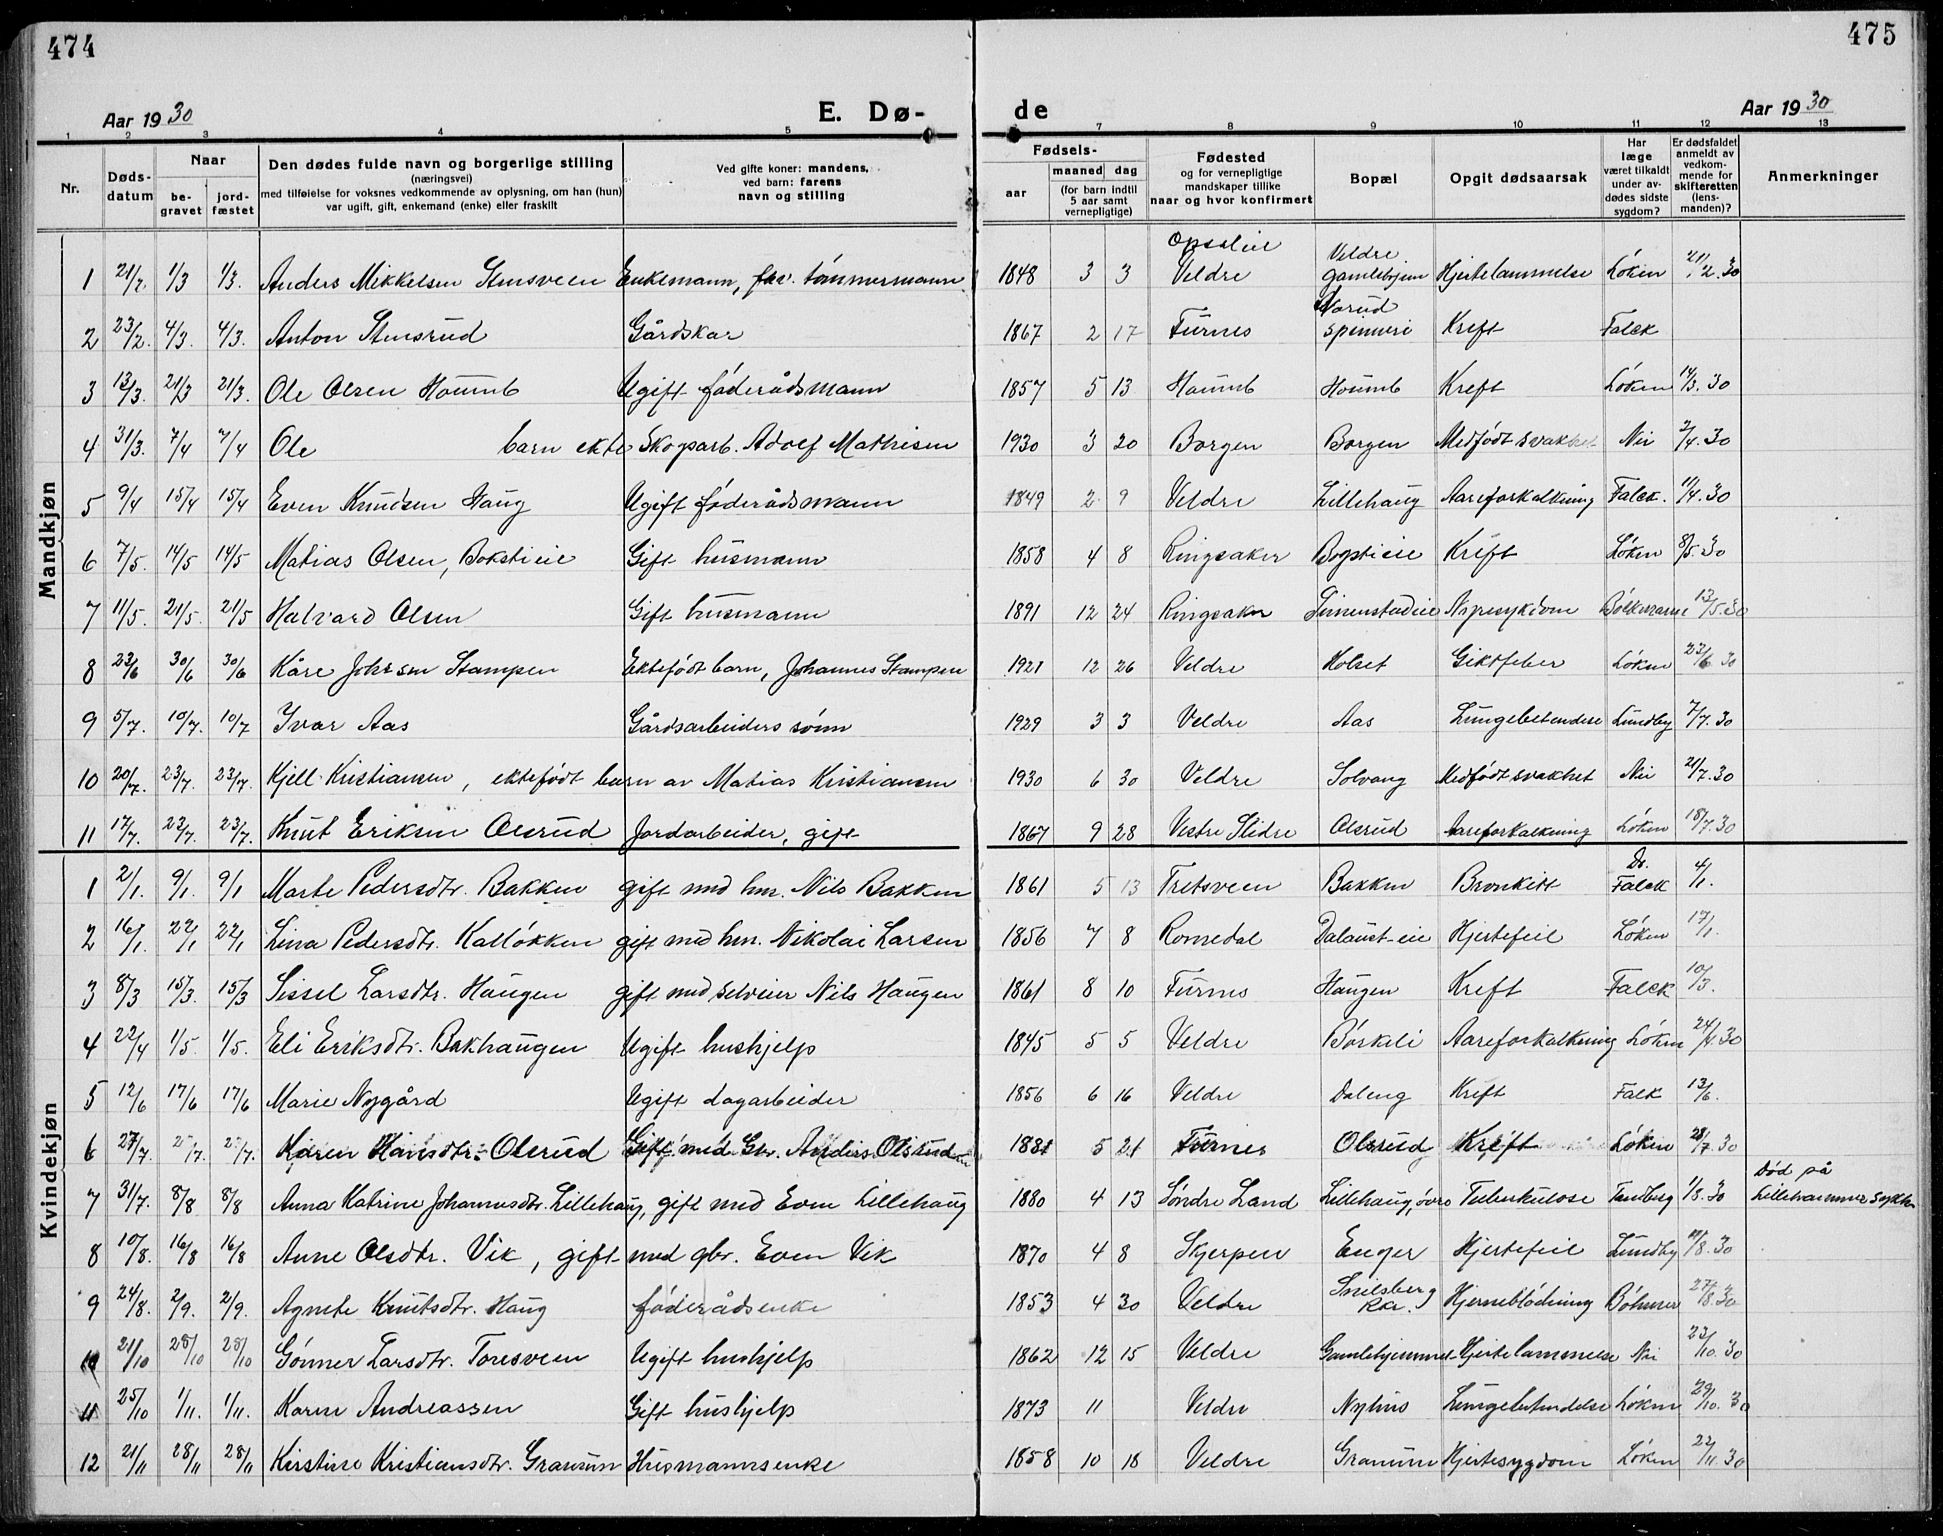 474
475
Aar 1930
E. Dø-
de
Aar 1930
1 2 3 4 5 7 8 9 10 11 12 13
Nr.
Døds-
datum
Naar
be-
gravet
jord-
fæstet
Den dødes fulde navn og borgerlige stilling
(næringsvei)
med tilføielse for voksnes vedkommende av oplysning, om han (hun)
var ugift, gift, enkemand (enke) eller fraskilt
Ved gifte koner: mandens,
ved barn: farens
navn og stilling
Fødsels-
aar
maaned dag
(for barn indtil
5 aar samt
vernepligtige)
Fødested
og for vernepligtige
mandskaper tillike
naar og hvor konfirmert
Bopæl
Opgit dødsaarsak
Har
læge
været tilkaldt
under av-
dødes sidste
sygdom?
Er dødsfaldet
anmeldt av
vedkom-
mende for
skifteretten
(lens-
manden)?
Anmerkninger
Mandkjøn
1 21/2. 1/3 1/3. Anders Mikkelsen Stensveen Enkemann, fhv. tømmermann 1848 3 3 Opsaleie Veldre Veldre gamlehjem Hjertelammelse Løken 21/2.30
2 23/2. 4/3. 4/3. Anton Stensrud Gårdskar 1867 2 17 Furnes spinneri Kreft Falck
3 13/3. 21/3 21/3. Ole Olsen Houmb Ugift føderådsmann 1857 5 13 Houmb Houmb Kreft Løken 14/3.30
4 31/3. 7/4 7/4 Ole barn ekte Skogsarb. Adolf Mathisen 1930 3 20 Borgen Borgen Medfødt svakhet Nei 2/4.30
5 9/4 15/4 15/4 Even Knudsen Haug Ugift føderådsmann 1849 2 9 Veldre Lillehaug Aareforkalkning Falck. 11/4.30
6 7/5. 14/5 14/5 Matias Olsen, Bokstieie Gift husmann 1858 4 8 Ringsaker Bogstieie Kreft Løken 8/5.30
7 11/5. 21/5. 21/5 Halvard Olsen Gift husmann 1891 12 24 Ringsaker 13/5.30
8 23/6 30/6 30/6 Kåre Johnsen Stampen Ektefødt barn, Johannes Stampen 1921 12 26 Veldre Holset Giktfeber Løken 23/6 30
9 5/7. 10/7. 10/7 Ivar Aas Gårdsarbeiders sønn 1929 3 3 Veldre Aas Lungebetendese Lundby 7/7.30
10 20/7. 23/7. 23/7. Kjell Kristiansen, ektefødt barn av Matias Kristiansen 1930 6 30 Veldre Solvang Medfødt svakhet Nei 21/7.30
11 17/7. 23/7. 23/7. Knut Eriksen Olsrud Jordarbeider, gift 1867 9 28 Vestre Slidre Olsrud Aareforkalkning Løken 18/7.30
Kvindekjøn
1 2/1. 9/1. 9/1 Marte Pedersdtr. Bakken gift med hm. Nils Bakken 1861 5 13 Tretsveen Bakken Bronkitt Dr. Falck 4/1.
2 16/1. 22/1 22/1 Lina Pedersdtr. Kalløkken gift med hm. Nikolai Larsen 1856 7 8 Romedal Dalaust-eie Hjertefeil Løken 17/1.
3 8/3 15/3. 15/3 Sissel Larsdtr. Haugen gift med selveier Nils Haugen 1861 8 10 Furnes Haugen Kreft Falck 10/3.
4 22/4 1/5. 1/5. Eli Eriksdtr. Bakhaugen Ugift hushjelp 1845 5 5 Veldre Børkeli Aareforkalkning Løken 24/4.30
5 12/6 17/6 17/6 Marie Nygård Ugift dagarbeider 1856 6 16 Veldre Daleng Kreft Falck 13/6.
6 27/7. Karen Hansdtr. Olsrud Gift med Gbr. Anders Olsrud 1881 5 21 Furnes Olsrud Kreft Løken 28/7.30
7 31/7. 8/8 8/8 Anna Katrine Johannesdtr. Lillehaug, gift med Even Lillehaug 1880 4 13 Søndre Land Lillehaug, øvre Tuberkulose Tandberg 1/8.30 Død på Lillehammer sykh.
8 10/8. 16/8 16/8 Anne Olsdtr. Vik, gift med gbr. Even Vik 1870 4 8 Skjerpen Enger Hjertefeil Lundby 11/8.30
9 24/8. 2/9. 2/9. Agnete Knutsdtr. Haug føderådsenke 1853 4 30 Veldre Snilsberg Hjerneblødning Bøhmer 27/8.30
10 21/10 28/10 28/10 Gønner Larsdtr. Toresveen Ugift hushjelp 1862 12 15 Veldre Gamlehjemmet Hjertelammelse Nei 23/10.30
11 25/10 1/11. 1/11. Karen Andreassen Gift hushjelp 1873 11 Veldre Nyhus Lungebetendelse Løken 29/10.30
12 21/11 28/11 28/11 Kirstine Kristiansdtr. Granum Husmannsenke 1858 10 18 Veldre Granum Hjertesygdom Løken 22/11.30